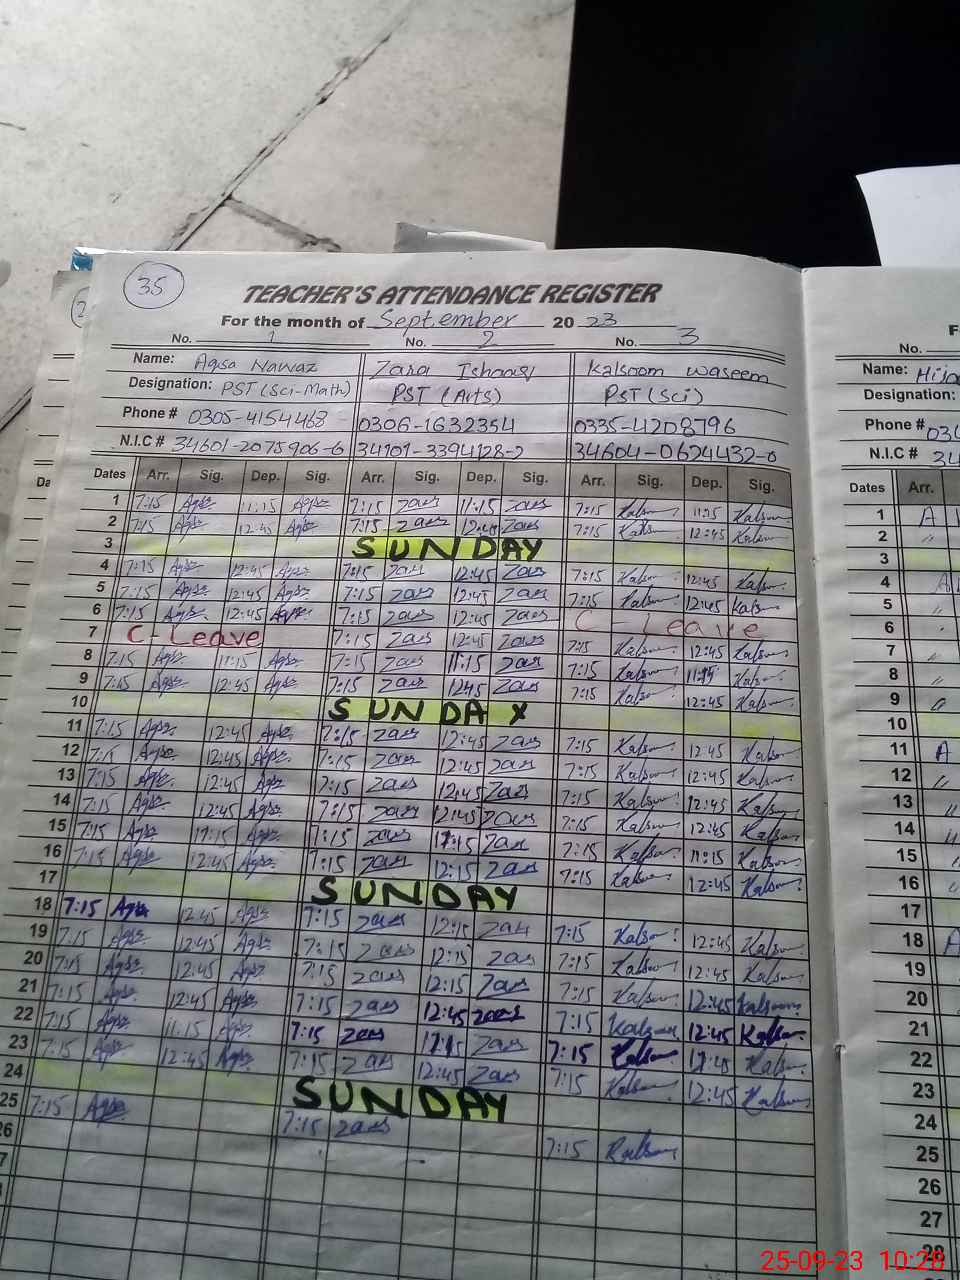 35
TEACHER'S ATTENDANCE REGISTER
For the month of September 2023
No. 1 No. 2 No. 3
Name: Aqsa Nawaz Zara Ishaaq Kalsoom Waseem
Designation: PST (Sci-Math) PST (Arts) PST (Sci)
Phone # 0305-4154468 0306-1632354 0335-4208796
N.I.C # 34601-2075906-6 34101-3394128-2 34604-0624432-0
Dates Arr. Sig. Dep. Sig. Arr. Sig. Dep. Sig. Arr. Sig. Dep. Sig.
1 7:15 Aqsa 11:15 Aqsa 7:15 Zara 11:15 Zara 7:15 Kalsoom 11:15 Kalsoom
2 7:15 Aqsa 12:45 Aqsa 7:15 Zara 12:45 Zara 7:15 Kalsoom 12:45 Kalsoom
3 SUNDAY
4 7:15 Aqsa 12:45 Aqsa 7:15 Zara 12:45 Zara 7:15 Kalsoom 12:45 Kalsoom
5 7:15 Aqsa 12:45 Aqsa 7:15 Zara 12:45 Zara 7:15 Kalsoom 12:45 Kalsoom
6 7:15 Aqsa 12:45 Aqsa 7:15 Zara 12:45 Zara C-Leave
7 C-Leave 7:15 Zara 12:45 Zara 7:15 Kalsoom 12:45 Kalsoom
8 7:15 Aqsa 11:15 Aqsa 7:15 Zara 11:15 Zara 7:15 Kalsoom 11:15 Kalsoom
9 7:15 Aqsa 12:45 Aqsa 7:15 Zara 12:45 Zara 7:15 Kalsoom 12:45 Kalsoom
10 SUNDAY
11 7:15 Aqsa 12:45 Aqsa 7:15 Zara 12:45 Zara 7:15 Kalsoom 12:45 Kalsoom
12 7:15 Aqsa 12:45 Aqsa 7:15 Zara 12:45 Zara 7:15 Kalsoom 12:45 Kalsoom
13 7:15 Aqsa 12:45 Aqsa 7:15 Zara 12:45 Zara 7:15 Kalsoom 12:45 Kalsoom
14 7:15 Aqsa 12:45 Aqsa 7:15 Zara 12:45 Zara 7:15 Kalsoom 12:45 Kalsoom
15 7:15 Aqsa 11:15 Aqsa 7:15 Zara 11:15 Zara 7:15 Kalsoom 11:15 Kalsoom
16 7:15 Aqsa 12:45 Aqsa 7:15 Zara 12:15 Zara 7:15 Kalsoom 12:45 Kalsoom
17 SUNDAY
18 7:15 Aqsa 12:45 Aqsa 7:15 Zara 12:15 Zara 7:15 Kalsoom 12:45 Kalsoom
19 7:15 Aqsa 12:45 Aqsa 7:15 Zara 12:15 Zara 7:15 Kalsoom 12:45 Kalsoom
20 7:15 Aqsa 12:45 Aqsa 7:15 Zara 12:15 Zara 7:15 Kalsoom 12:45 Kalsoom
21 7:15 Aqsa 12:45 Aqsa 7:15 Zara 12:45 Zara 7:15 Kalsoom 12:45 Kalsoom
22 7:15 Aqsa 11:15 Aqsa 7:15 Zara 11:15 Zara 7:15 Kalsoom Kalsoom
23 7:15 Aqsa 12:45 Aqsa 7:15 Zara 12:45 Zara 7:15 Kalsoom 12:45 Kalsoom
24 SUNDAY
25 7:15 Aqsa 7:15 Zara 7:15 Kalsoom
26
No.
Name:
Designation:
Phone #
N.I.C # 34
Dates Arr.
1 A
2 "
3
4 A
5 "
6 "
7 "
8 "
9
10
11 A
12 "
13 "
14 "
15
16
17
18 A
19
20
21
22
23
24
25
26
27
28
25-09-23 10:28